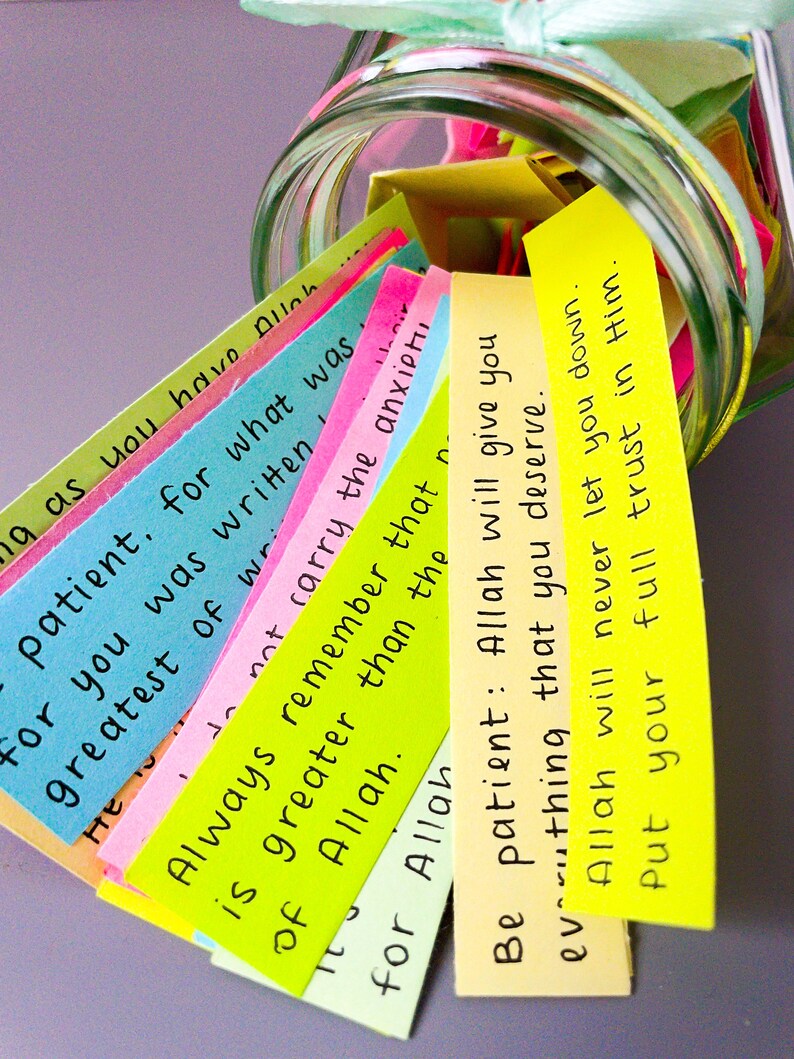 as you have Allah
patient, for what was
for you was written
greatest of
He is
do not carry the anxiety
Always remember that
is greater than the
of Allah.
for Allah
Be patient: Allah will give you
everything that you deserve.
Allah will never let you down.
Put your full trust in Him.